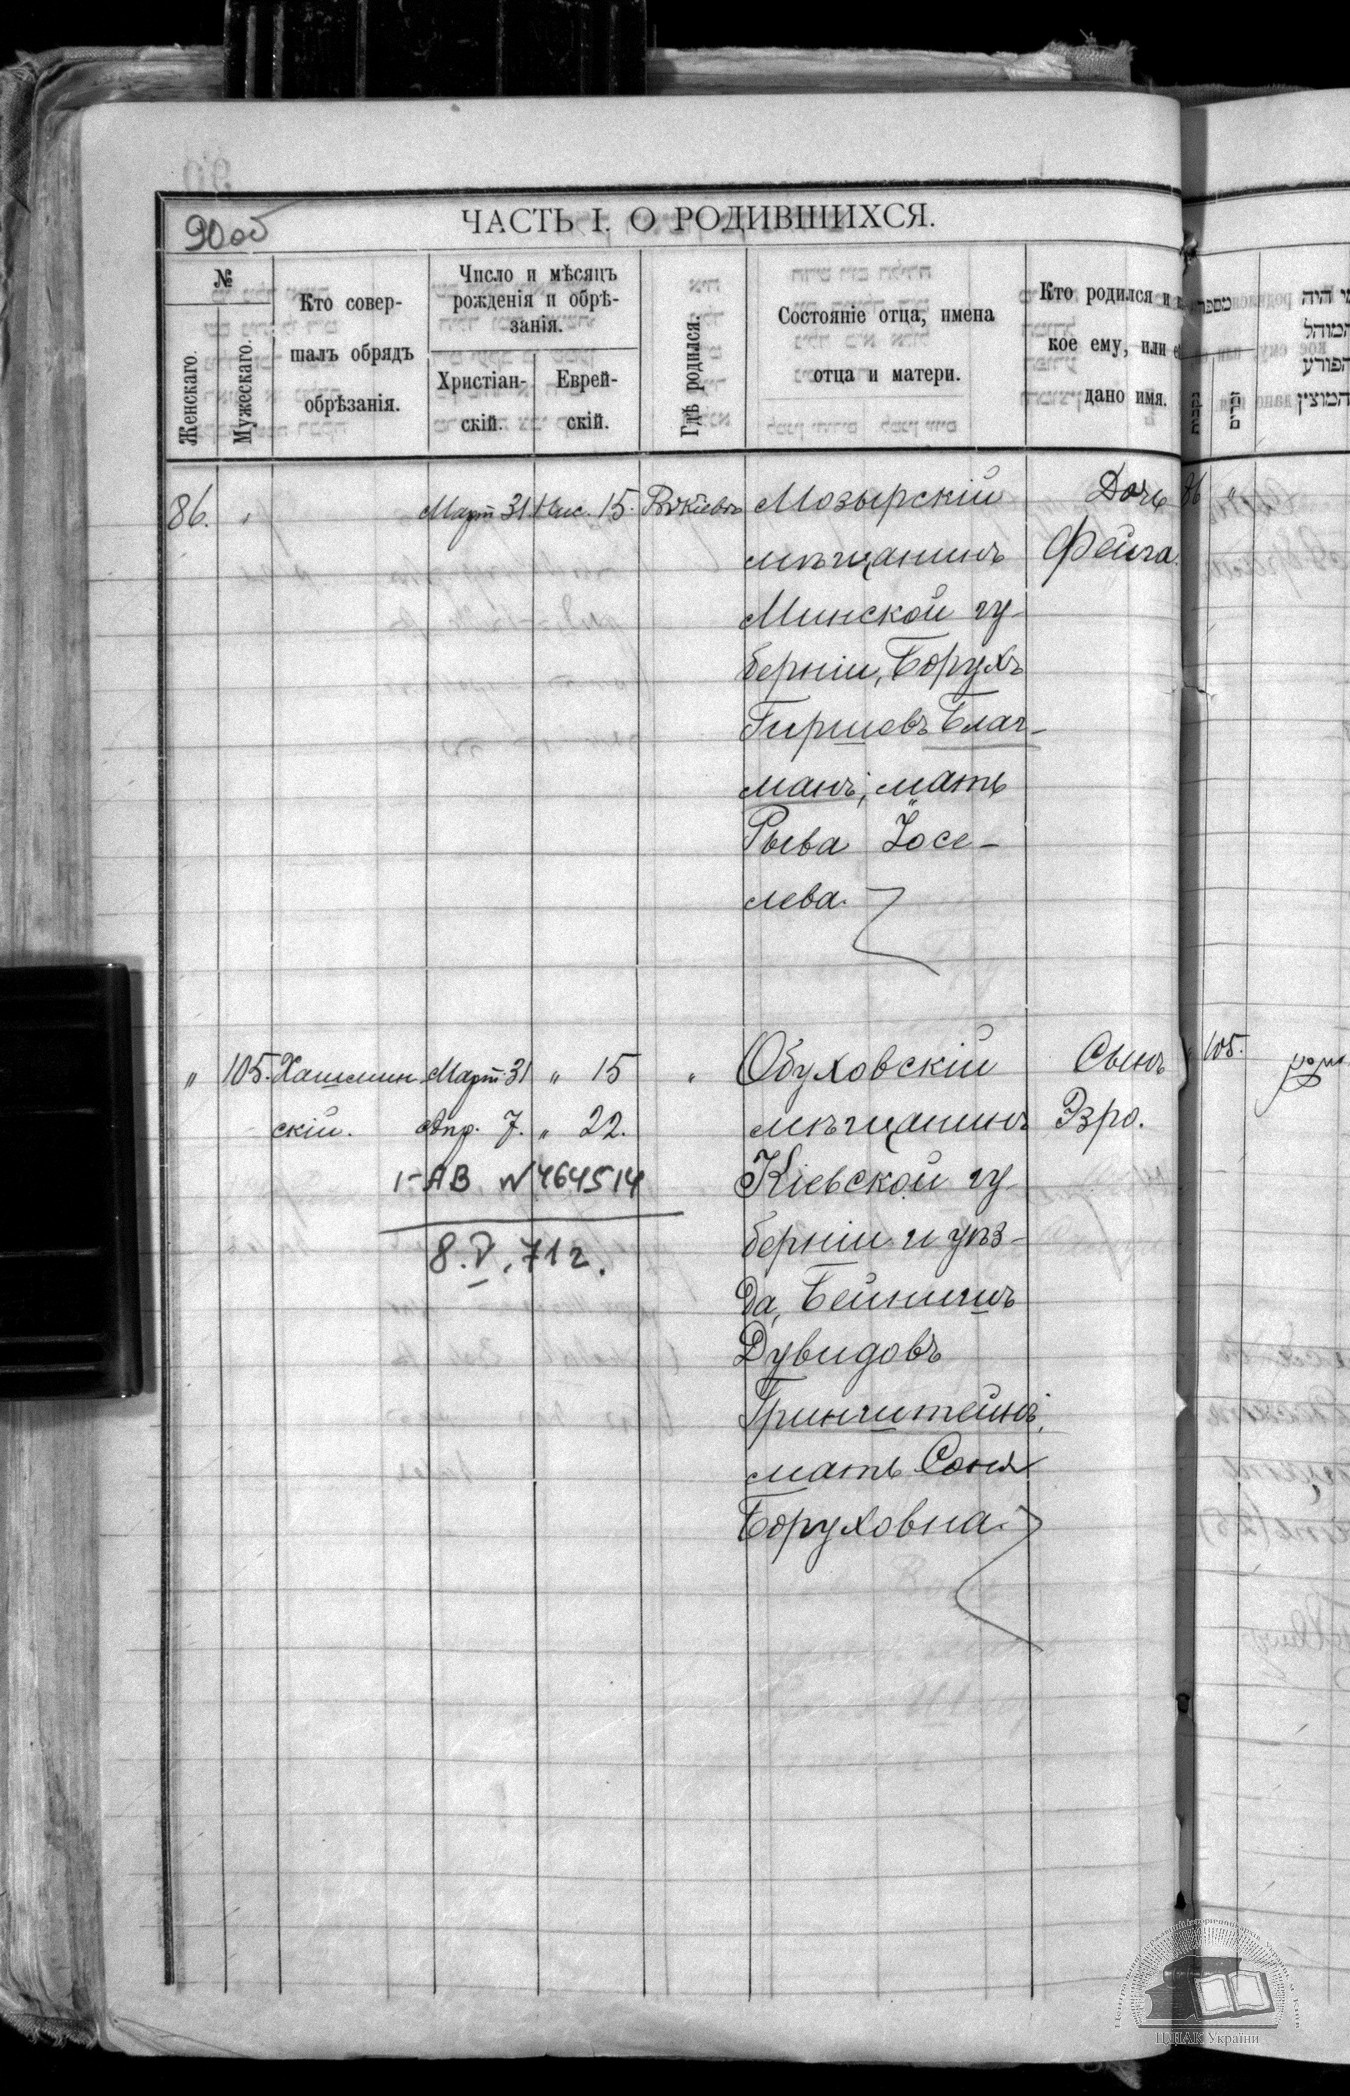 90об
ЧАСТЬ I. О РОДИВШИХСЯ.
№
Женскаго.
Мужескаго.
Кто совер-
шалъ обрядъ
обрѣзанія.
Число и мѣсяцъ
рожденія и обрѣ-
занія.
Христіан-
скій.
Еврей-
скій.
Гдѣ родился.
Состояніе отца, имена
отца и матери.
Кто родился и
кое ему, или е
дано имя.
86. " Март 31 Нис. 15. Въ Кіевѣ
Мозырскій
мѣщанинъ
Минской гу-
берніи, Борухъ
Гиршовъ Благ-
манъ; мать
Рыва Іосе-
лева.
Дочь
Фейга.
86 "
" 105. Хашмин- Март 31 " 15 "
скій. Апр. 7. " 22.
I-АВ №464514
8.V.71г.
Обуховскій
мѣщанинъ
Кіевской гу-
берніи и уѣз-
да, Бейнишъ
Дувидовъ
Гринштейнъ,
мать Соня
Боруховна.
Сынъ
Эзро.
" 105.
היה
המוהל
הפורע
המוצין
ЦДІАК України